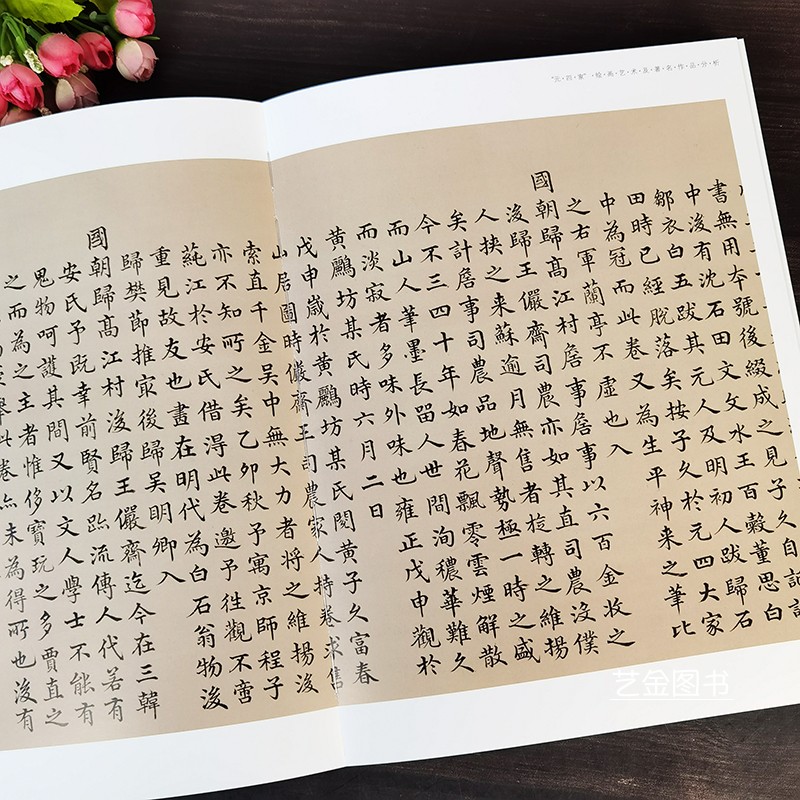 "元四家"·绘画艺术及著名作品分析
書無用夲號後綴成之見子久自記
中浚有沈石田文文水王百穀董思白
鄒衣白五跋其元人及明初人跋歸石
田時已經脫落矣按子久於元四大家
中為冠而此卷又為生平神来之筆比
之右軍蘭亭不虛也入
國朝歸髙江村詹事詹事以六百金收之
浚歸王儼齋司農亦如其直司農沒僕
人挟之来蘇逾月無售者旋轉之維揚
矣計詹事司農品地聲勢極一時之盛
今不三四十年如春花飄零雲煙解散
而山人筆墨長留人世間洵穠華難久
而淡寂者多味外味也雍正戊申觀於
黃鸝坊某氏時六月二日
戊申歲於黃鸝坊某氏閱黃子久富春
山居圖時儼齋王司農家人持卷求售
索直千金吳中無大力者將之維揚浚
亦不知所之矣乙卯秋予寓京師程子
蒓江於安氏借淂此卷邀予徃觀不啻
重見故友也畫在明代為白石翁物浚
歸樊節推㝡後歸吳明卿入
國朝歸髙江村浚歸王儼齋迄今在三韓
安氏予既幸前賢名跡流傳人代若有
鬼物呵護其間又以文人學士不能有
之而為之主者惟侈寶玩之多賈直之
此卷亦未為得所也浚有
艺金图书